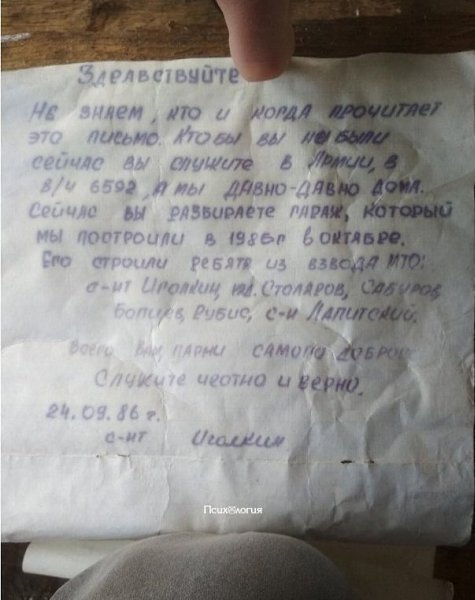 Здравствуйте
Не знаем, кто и когда прочитает
это письмо. Кто бы вы ни были
сейчас вы служите в Армии, в
в/ч 6592, а мы давно-давно дома.
Сейчас вы разбираете гараж, который
мы построили в 1986г в октябре.
Его строили ребята из взвода МТО:
с-нт Иголкин, Столаров, Сабуров
Рубис, с-н Лапитский.
Всего Вам, парни самого доброго
Служите честно и верно.
24.09.86 г.
с-нт Иголкин
Псих☺логия